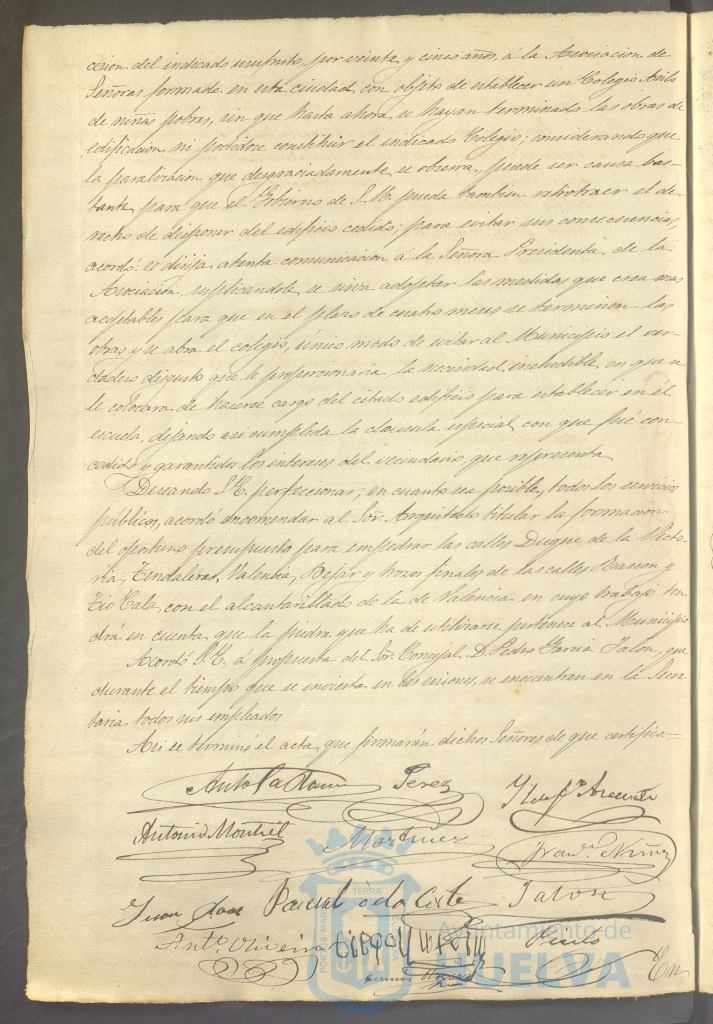 cesion del indicado usufruto, por veinte y cinco años, á la Asociacion de
Señoras formada en esta ciudad con objeto de establecer un Colegio Asilo
de niñas pobres, sin que hasta ahora se hayan terminado las obras de
edificacion ni podidose constituir el indicado Colegio; considerando que
la paralizacion que desgraciadamente se observa, puede ser causa bas-
tante para que el Gobierno de S. M. pueda tambien retrotraer el de-
recho de disponer del edificio cedido; para evitar sus consecuencias,
acordó: se dirija atenta comunicacion á la Señora Presidenta de la
Asociacion, suplicandole se sirva adoptar las medidas que crea mas
aceptables para que en el plazo de cuatro meses se terminen las
obras y se abra el colegio, único modo de evitar al Municipio el ver-
dadero disgusto que le proporcionaria la necesidad ineludible en que se
le colocara de hacerse cargo del citado edificio para establecer en él
escuela, dejando asi cumplida la clausula especial con que fué con-
cedido y garantidos los intereses del vecindario que representa
Deseando S. E. perfeccionar, en cuanto sea posible, todos los servicios
públicos, acordó encomendar al Sor. Arquitecto titular la formacion
del oportuno presupuesto para empedrar las calles Duque de la Victo-
ria, Tendaleras, Valencia, Bejar y trozos finales de las calles Rascon y
Tio Cala con el alcantarillado de la de Valencia en cuyo trabajo ten
drá en cuenta que la piedra que ha de utilizarse pertenece al Municipio
Acordó S. E. á propuesta del Sor. Concejal D. Pedro Garcia Jalon, que
durante el tiempo que se invierta en las sesiones, se encuentran en la Secre
taria todos sus empleados
Asi se terminó el acta que firmarán dichos Señores de que certifico.=
Perez
Antonio Montiel Martinez Nuñez
Juan Pascual de la Corte Jalon
Antº Oliveira
Ayuntamiento de
HUELVA
En